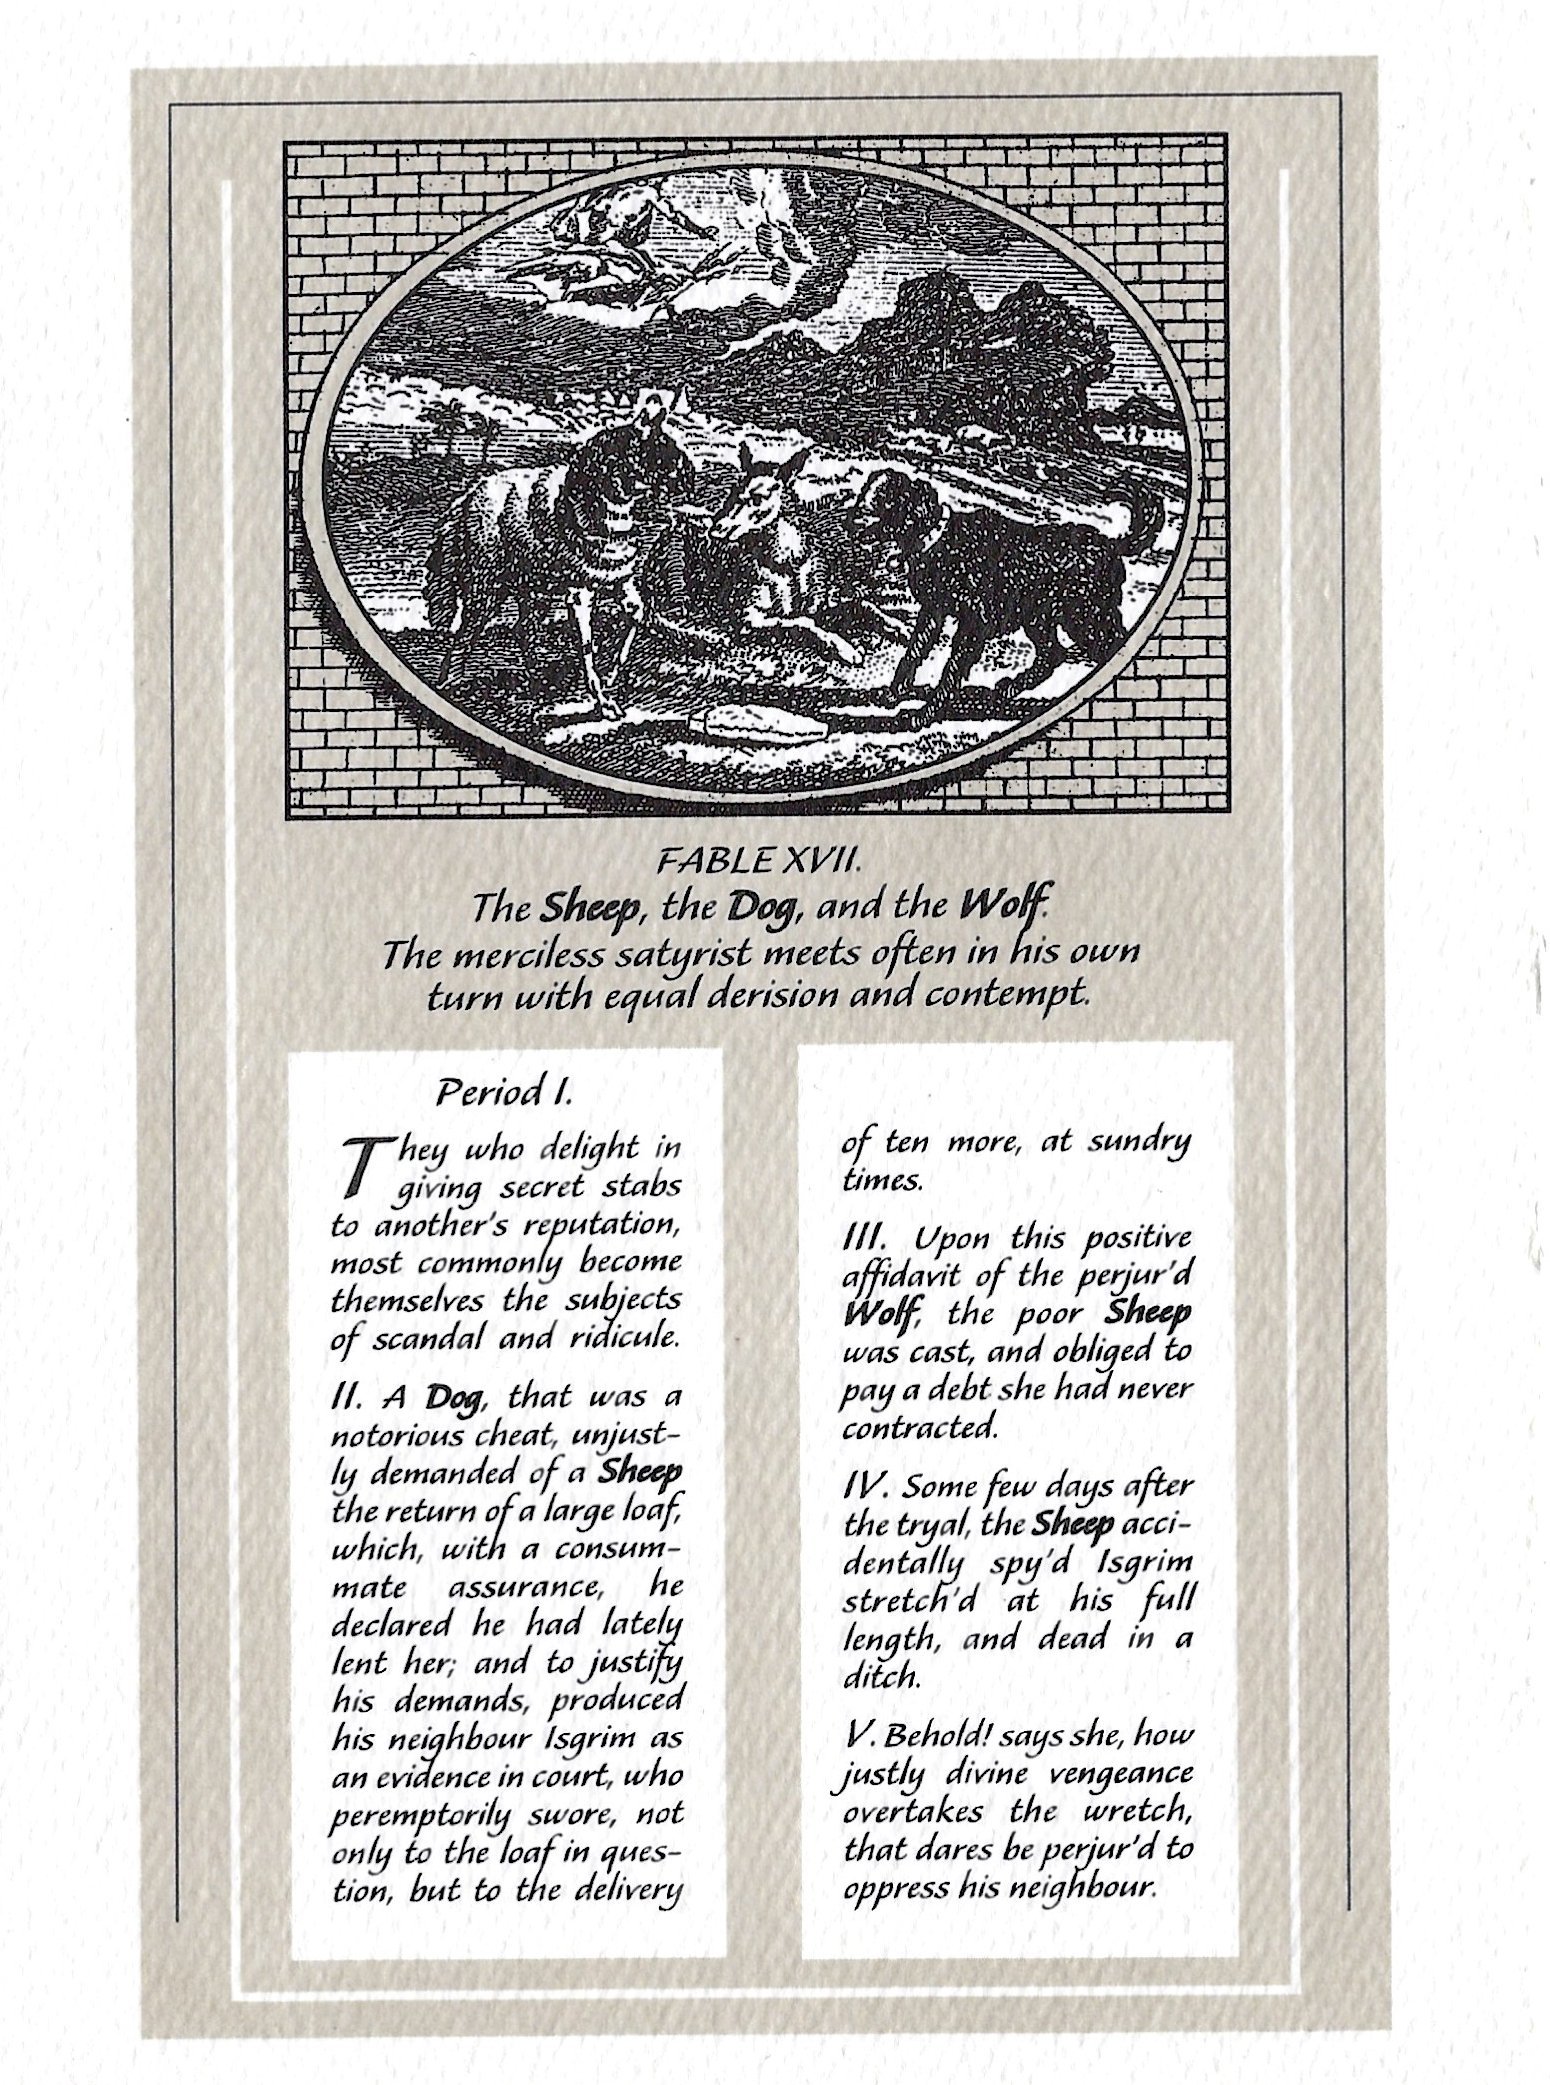 FABLE XVII.
The Sheep, the Dog, and the Wolf.
The merciless satyrist meets often in his own
turn with equal derision and contempt.
Period I.
They who delight in
giving secret stabs
to another's reputation,
most commonly become
themselves the subjects
of scandal and ridicule.
II. A Dog, that was a
notorious cheat, unjust-
ly demanded of a Sheep
the return of a large loaf,
which, with a consum-
mate assurance, he
declared he had lately
lent her; and to justify
his demands, produced
his neighbour Isgrim as
an evidence in court, who
peremptorily swore, not
only to the loaf in ques-
tion, but to the delivery
of ten more, at sundry
times.
III. Upon this positive
affidavit of the perjur'd
Wolf, the poor Sheep
was cast, and obliged to
pay a debt she had never
contracted.
IV. Some few days after
the tryal, the Sheep acci-
dentally spy'd Isgrim
stretch'd at his full
length, and dead in a
ditch.
V. Behold! says she, how
justly divine vengeance
overtakes the wretch,
that dares be perjur'd to
oppress his neighbour.